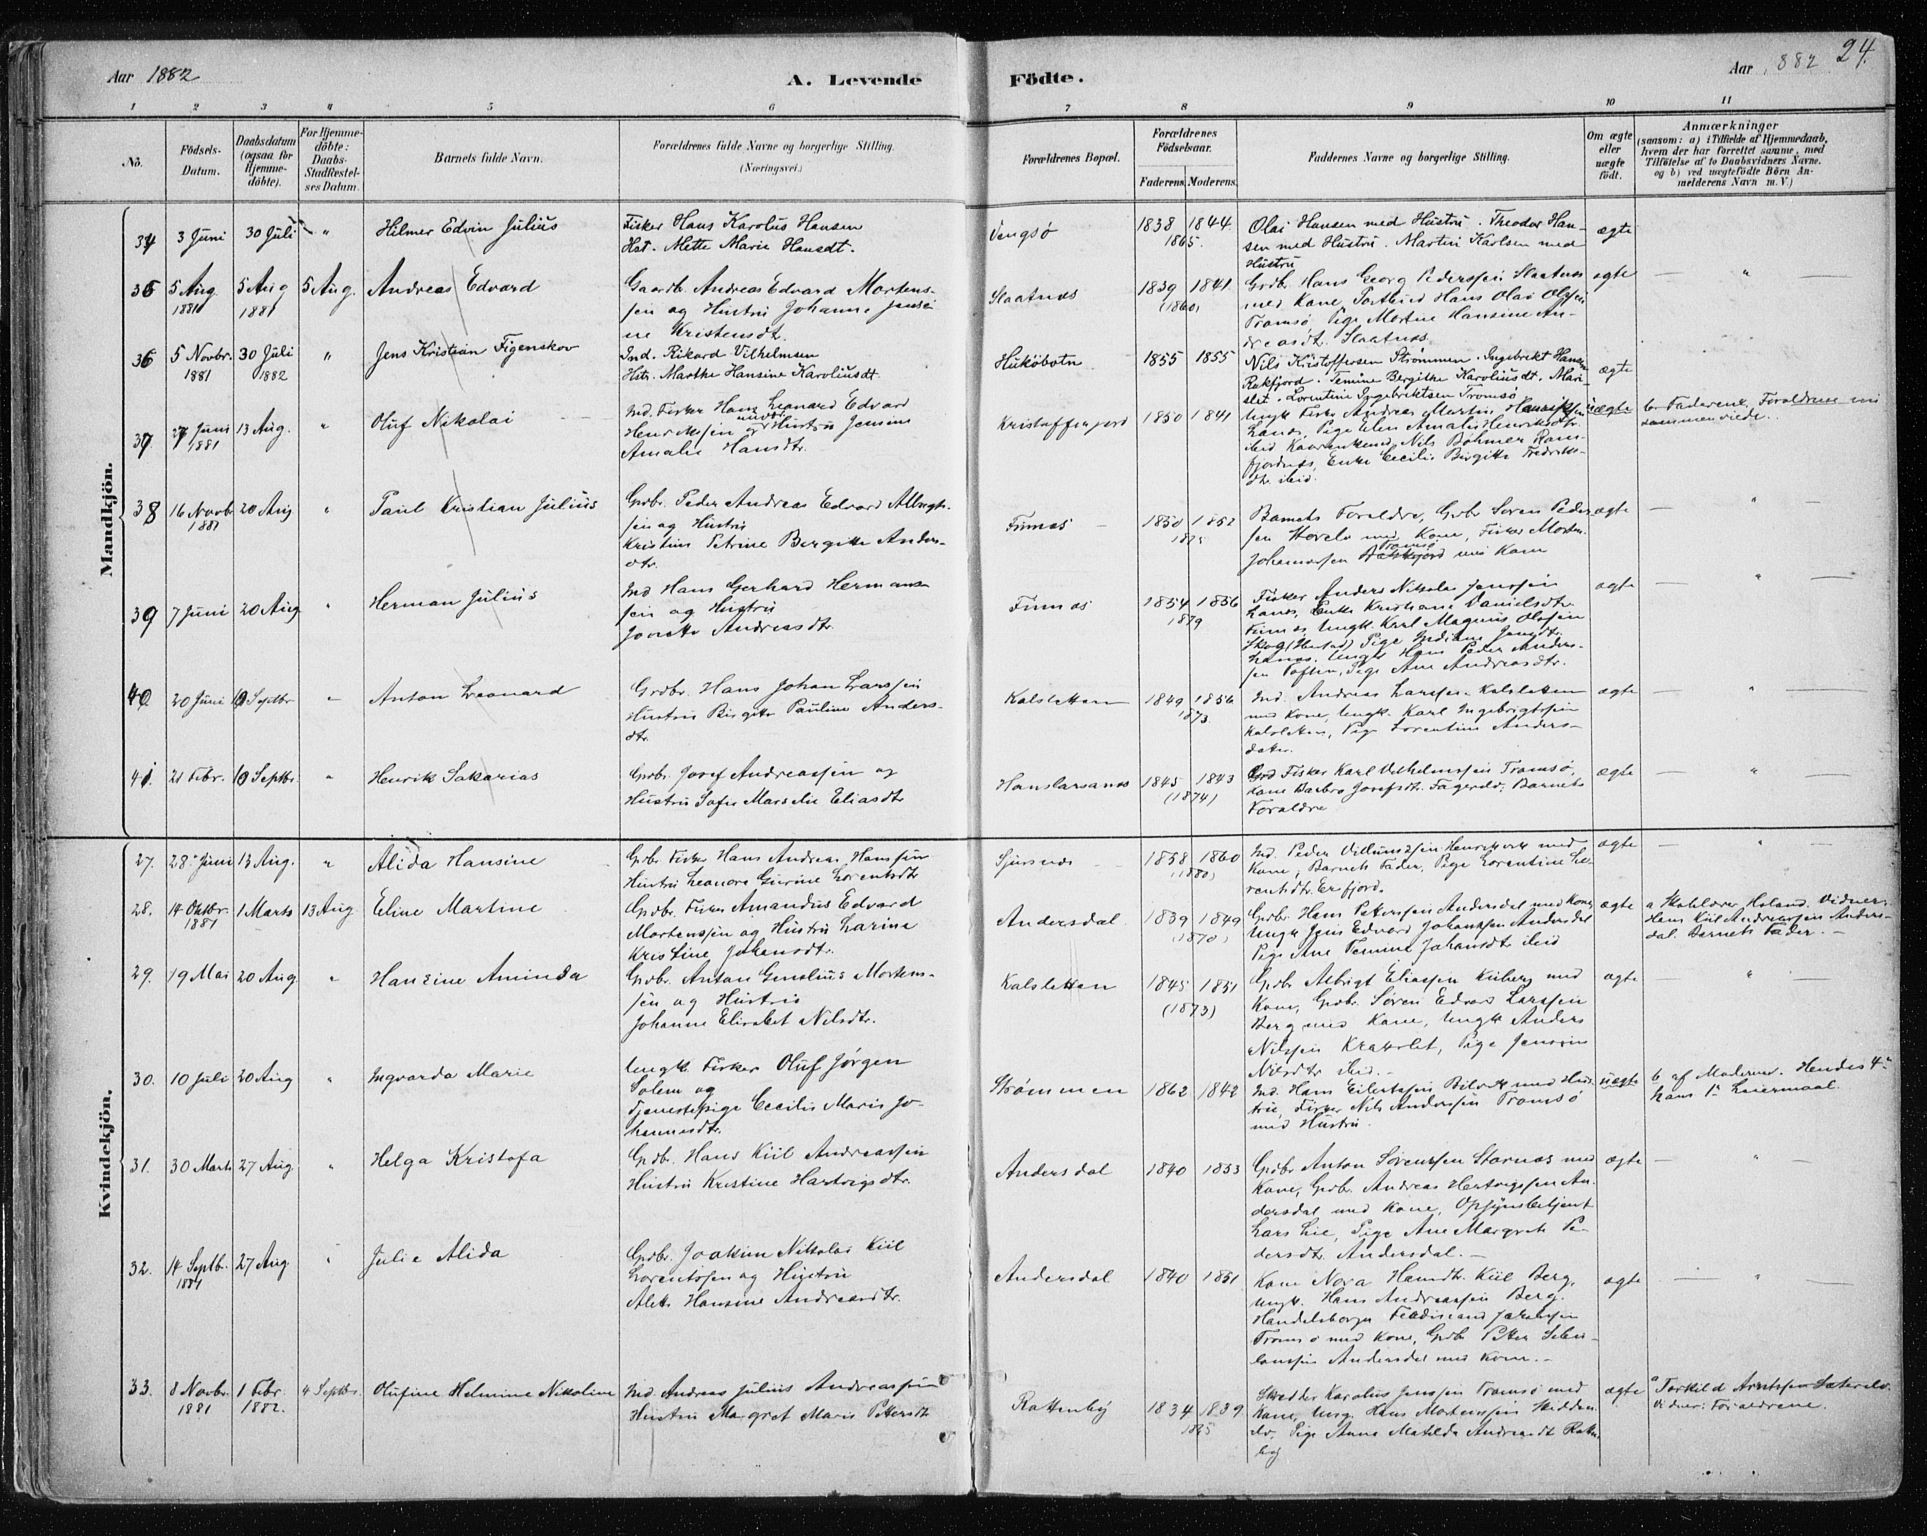 Aar 1882
A. Levende
Födte.
Aar 1882
24.
1 2 3 4 5 6 7 8 9 10 11
No.
Födsels-
Datum.
Daabsdatum
(ogsaa for
Hjemme-
döbte).
For Hjemme-
döbte:
Daabs-
Stadfæstel-
ses Datum.
Barnets fulde Navn.
Forældrenes fulde Navne og borgerlige Stilling.
(Næringsvei.)
Forældrenes Bopæl.
Forældrenes
Födselsaar.
Faderens. Moderens.
Faddernes Navne og borgerlige Stilling.
Om ægte
eller
uægte
födt.
Anmærkninger
(saasom: a) i Tilfælde af Hjemmedaab,
hvem der har forrettet samme, med
Tilföielse af to Daabsvidners Navne.
og b) ved uægtefödte Börn An-
melderens Navn m. V.)
Mandkjön.
34 3 Juni 30 Juli " Hilmer Edvin Julius
Fisker Hans Karolus Hansen
Hst. Mette Marie Hansdt.
Vengsø 1838 1844
1865.
Olai Hansen med Hustru. Theodor Han-
sen med Hustru. Martin Karlsen med
Hustru
ægte
35 5 Aug 1881 5 Aug 1881 5 Aug. Andreas Edvard
Gaardb. Andreas Edvard Mortens-
sen og Hustru Johanne Jensi-
ne Kristensdt.
Slaatnes 1839 1841
(1860)
Grdb. Hans Georg Pederssen Slaatnes
med Kone, Postbud Hans Olai Olssen
Tromsø, Pige Martine Hansine An-
dreasdt. Slaatnes.
ægte — " —
36 5 Novbr. 1881 30 Juli 1882 " Jens Kristian Figenskov
Ind. Rikard Vilhelmsen
Hst. Marthe Hansine Karoliusdt.
Hukøbotn 1855 1855
Nils Kristoffersen Strømmen. Ingebrikt Hansen
Rakfjord. Temine Bergithe Karoliusdt. Mari-
slet. Lorentine Ingebriktsen Tromsø
ægte
37 27 Juni 1881 13 Aug. " Oluf Nikolai
Ind. Fisker Hans Leonard Edvard
Henrikssen og Hustru Jensine
Amalie Hansdtr.
Kristoffersjord 1850 1841
Ungk. Fisker Andreas Martin Henrikssen
Lanes, Pige Elen Amalie Henriksdtr.
ibid Nils Böhmer Rams-
fjordnes, Enke Cecilie Birgitte Fredriks-
dtr. ibid.
uægte b. Faderen. Forældrene nu
sammenviede.
38 16 Novb. 1881 20 Aug " Paul Kristian Julius
Grdbr. Peder Andreas Edvard Albrigts-
sen og Hustru
Kristine Petrine Bergitte Anders-
dtr.
Finnæs — 1850 1852
Barnets Forældre, Grdbr. Søren Peder-
sen med Kone, Fisker Morten
Johannessen Tromsø med Kone
ægte — " —
39 7 Juni 20 Aug " Herman Julius
Ind Hans Gerhard Hermans-
sen og Hustru
Andreasdtr.
Finnæs 1854 1856
1879
Fisker Anders Nikolai Jenssen
Lanes, Enke Kristiane Danielsdtr.
Finnæs, Ungk. Karl Magnus Olssen
Skog (Ibestad) Pige Jensdtr.
Lanes. Ungk Hans Peder Anders-
sen Toften, Pige Ane Andreasdtr.
ægte — " —
40 20 Juni 10 Septbr. " Anton Leonard
Grdbr. Hans Johan Larssen
Hustru Birgitte Pauline Anders-
dtr.
Kalsletten 1849 1856
1873
Ind. Andreas Larssen Kalsletten
med Kone, Ungk. Karl Ingebrigtssen
Kalsletten, Pige Lorentine Anders-
datter.
ægte — " —
41 21 Febr. 10 Septbr. " Henrik Sakarias
Grdbr. Josef Andreassen og
Hustru Sofie Marselie Eliasdtr
Hanslarsanes 1845 1843
(1874)
Fisker Karl Vilhelmssen Tromsø,
Kone Barbro Josefsdtr. Fagerelv, Barnets
Forældre
ægte — " —
Kvindekjön.
27. 28 Juni 13 Aug. " Alida Hansine
Grdbr. Fisker Hans Andreas Hanssen
Hustru Leonore Gurine Lorentsdt
Sjursnes 1858 1860
(1880)
Ind. Peder med
Kone, Barnets Fader, Pige Lorentine Lo-
rentsdtr. Erfjord.
ægte — "
28. 14 Oktbr. 1881 1 Marts 13 Aug Eline Martine
Grdbr. Fisker Amandus Edvard
Mortenssen og Hustru Larine
Kristine Johansdtr.
Andersdal 1839 1849
(1870)
Grdbr. Hans Peterssen Andersdal med Kone,
Ungk Jens Edvard Johanssen Andersdal
Pige Ane Temine Johansdt ibid
ægte a Skolelærer Holand. Vidner:
Hans Kiil Andreassen Anders-
dal. Barnets Fader. —
29. 19 Mai 20 Aug " Hansine Aminda
Grdbr. Anton Mortens-
sen og Hustru
Johanne Elisabet Nilsdtr.
Kalsletten 1845 1851
(1873)
Grdbr Albrigt Eliassen Kiiberg med
Kone, Grdbr. Søren Edvard Larssen
Berg med Kone, Ungk Anders
Nilssen Krakslet, Pige Jensine
Nilsdtr ibid. —
ægte — " —
30. 10 Juli 20 Aug " Ingvarda Marie
Ungk. Fisker Oluf Jörgen
Solem og
Tjenestepige Cecilie Marie Jo-
hannesdtr.
Strømmen 1862 1842
Ind. Hans Eilertssen med Hus-
tru, Fisker Nils Anderssen Tromsø
med Hustru
uægte b. af Moderen. Hendes 4de
hans 1ste Leiermaal.
31. 30 Marts 27 Aug " Helga Kristofa
Grdbr. Hans Kiil Andreassen
Hustru Kristine Hartvigsdtr.
Andersdal 1840 1853
Grdbr Anton Sørenssen Stornæs med
Kone, Grdbr. Andreas Hertvigssen An-
dersdal med Kone, Opsynsbetjent
Lars Lie, Pige Ane Margrete Pe-
dersdtr. Andersdal. —
ægte — " —
32. 14 Septb. 1881 27 Aug. " Julie Alida
Grdbr. Joakim Nikolai Kiil
Lorentssen og Hustru
Alette Hansine Andreasdtr.
Andersdal 1840 1851
Kone Nora Hansdtr. Kiil Berg,
Ungk. Hans Andreassen Berg.
Handelsborger Ferdinand Jakobsen
Tromsø med Kone, Grdbr Petter
Andersdal med Kone. —
ægte — " —
33. 8 Novbr. 1881 1 Febr. 1882. 4 Septbr. Olufine Helmine Nikoline
Ind. Andreas Julius Andreassen
Hustru Margret Marie Petersdtr
Rattenby 1834 1839
1865
Skrædder Karolus Jenssen Tromsø med
Kone, Ung. Hans Mortenssen Skidden-
elv, Pige Anna Matilde Andreasdt Ratten-
by
ægte a Torkild Arntssen Sæterelv.
Vidner: Forældrene.